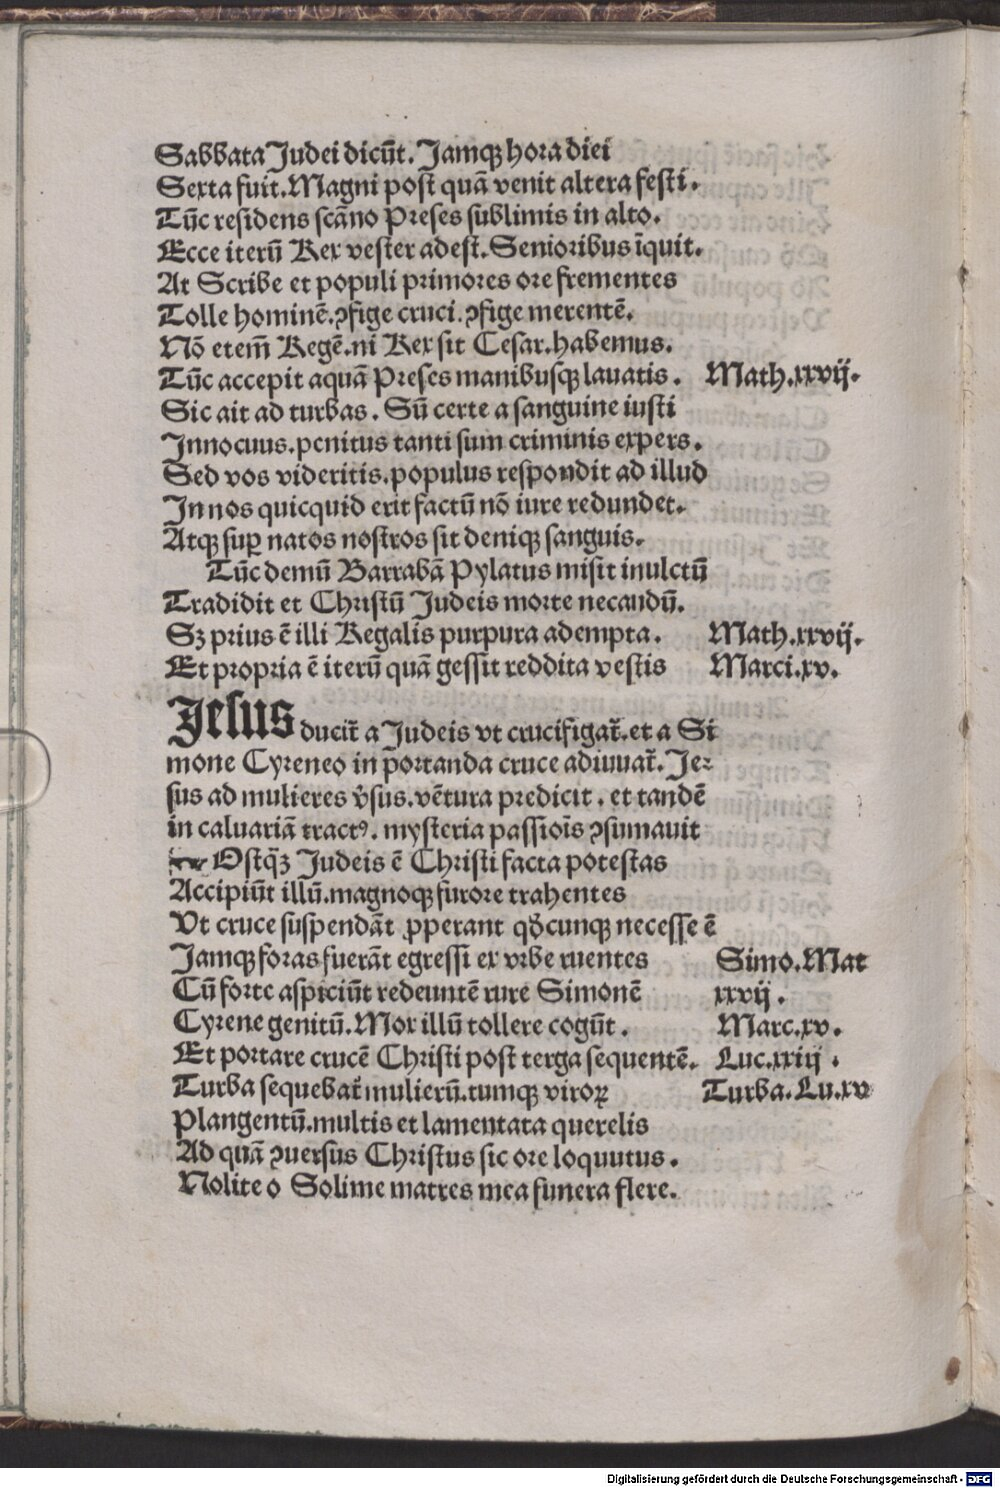 Sabbata Judei dicūt. Jamqꝫ hora diei
Sexta fuit. Magni post quā venit altera festi.
Tūc residens scāno Preses sublimis in alto.
Ecce iterū Rex vester adest. Senioribus īquit.
At Scribe et populi primores ore frementes
Tolle hominē. ꝯfige cruci. ꝯfige merentē.
Nō etem̄ Regē. ni Rex sit Cesar. habemus.
Tūc accepit aquā Preses manibusqꝫ lauatis. Math. xxvij.
Sic ait ad turbas. Sū certe a sanguine iusti
Innocuus. penitus tanti sum criminis expers.
Sed vos videritis. populus respondit ad illud
In nos quicquid erit factū nō iure redundet.
Atqꝫ suꝑ natos nostros sit deniqꝫ sanguis.
Tūc demū Barrabā Pylatus misit inulctū
Tradidit et Christū Judeis morte necandū.
Sꝫ prius ē illi Regalis purpura adempta. Math. xxvij.
Et propria ē iterū quā gessit reddita vestis Marci. xv.
Jesus ducit̄ a Judeis vt crucifigat̄. et a Si
mone Cyreneo in portanda cruce adiuuat̄. Je⸗
sus ad mulieres v̄sus. vētura predicit. et tandē
in caluariā tractꝰ. mysteria passiōis ꝯsumauit
Ostqꝫ̄ Judeis ē Christi facta potestas
Accipiūt illū. magnoqꝫ furore trahentes
Vt cruce suspendāt ꝓperant qd̄cunqꝫ necesse ē
Jamqꝫ foras fuerāt egressi ex vrbe ruentes Simo. Mat
Cū forte aspiciūt redeuntē rure Simonē xxvij.
Cyrene genitū. Mox illū tollere cogūt. Marc. xv.
Et portare crucē Christi post terga sequentē. Luc. xxiij.
Turba sequebat̄ mulierū. tumqꝫ viroꝝ Turba. Lu. xv
Plangentū. multis et lamentata querelis
Ad quā ꝯuersus Christus sic ore loquutus.
Nolite o Solime matres mea funera flere.
Digitalisierung gefördert durch die Deutsche Forschungsgemeinschaft - DFG